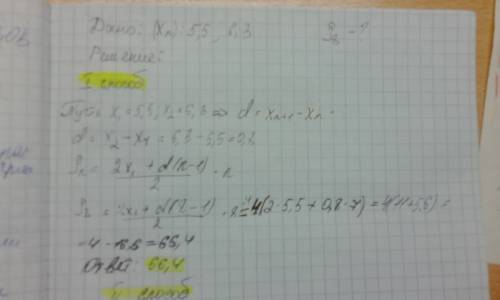 Дано: (xn): 5,5 ; 6,3 S8 - ?
Решение:
I способ
Пусть x1 = 5,5, x2 = 6,3 ⇒ d = xn+1 - xn
d = x2 - x1 = 6,3 - 5,5 = 0,8
Sn = 2x1 + d(n-1) / 2 · n
S8 = 2x1 + d(n-1) / 2 · 8 = 4(2·5,5 + 0,8·7) = 4(11+5,6) =
= 4 · 16,6 = 66,4
Ответ: 66,4
II способ